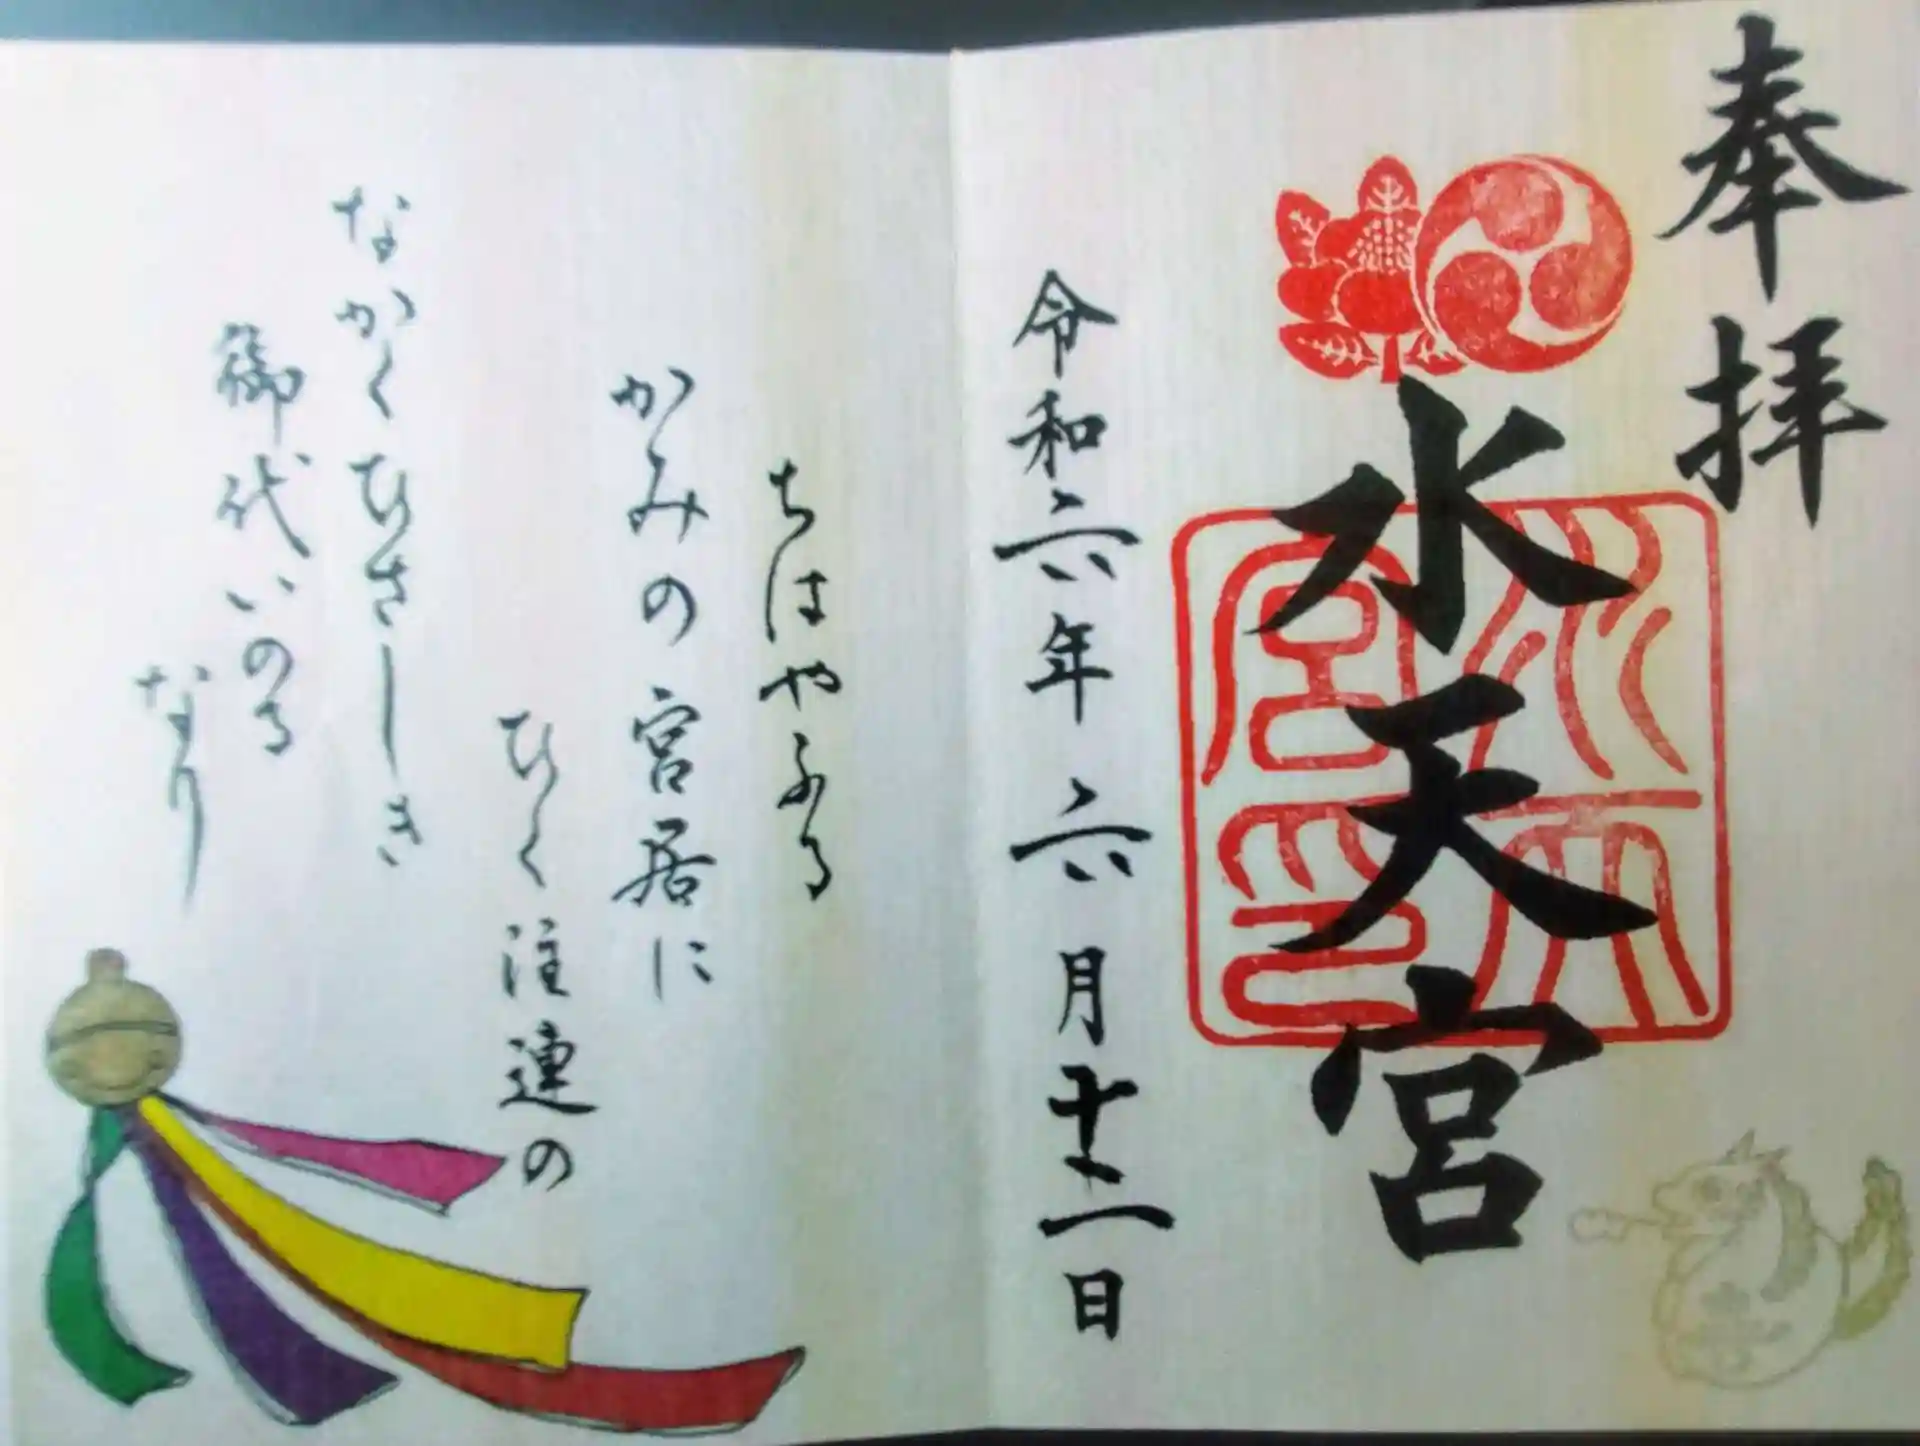 奉拝
水天宮
水天宮印
令和六年六月十二日
ちはやふる
かみの宮居に
ひく注連の
なかくひさしき
御代いのる
なり